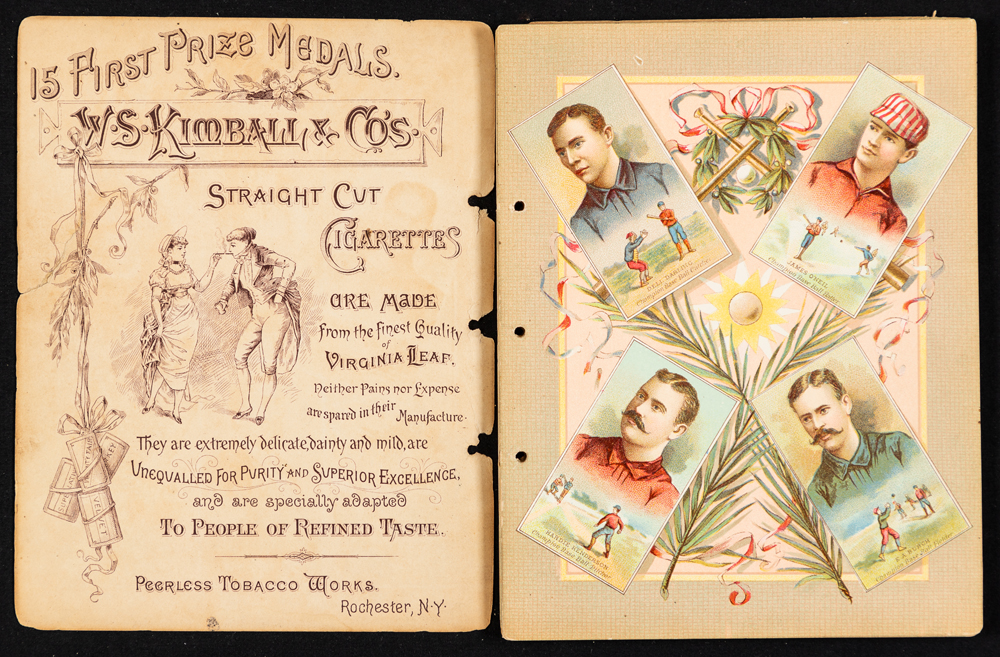 15 First Prize Medals.
W.S. Kimball & Co's.
Straight Cut
Cigarettes
are made
from the finest Quality
of
Virginia Leaf.
Neither Pains nor Expense
are spared in their Manufacture.
They are extremely delicate, dainty and mild, are
Unequalled for Purity and Superior Excellence,
and are specially adapted
To People of Refined Taste.
Peerless Tobacco Works.
Rochester, N.Y.
VELVET
DELL DARLING,
Champion Base Ball Catcher
JAMES O'NEIL
Champion Base Ball Batter
HARDIE HENDERSON
Champion Base Ball Pitcher
BURCH
Champion Base Ball Fielder